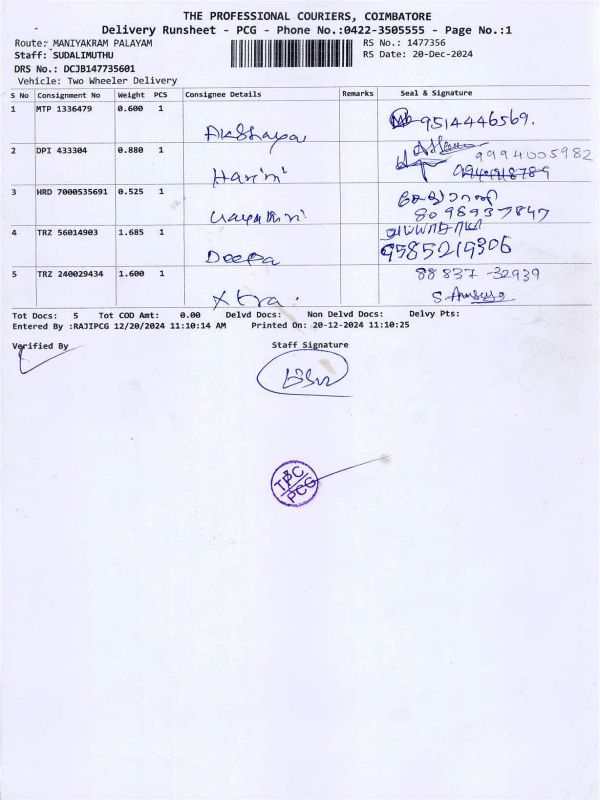 THE PROFESSIONAL COURIERS, COIMBATORE
Delivery Runsheet - PCG - Phone No.:0422-3505555 - Page No.:1
Route: MANIYAKRAM PALAYAM RS No.: 1477356
Staff: SUDALIMUTHU RS Date: 20-Dec-2024
DRS No.: DCJB147735601
Vehicle: Two Wheeler Delivery
S No Consignment No Weight PCS Consignee Details Remarks Seal & Signature
1 MTP 1336479 0.600 1
Akshaya 9514446569.
2 DPI 433304 0.880 1 9994005982
Harini
3 HRD 7000535691 0.525 1
Gayathri 8098937847
4 TRZ 56014903 1.685 1
Deepa 9585219306
5 TRZ 240029434 1.600 1 88837-32939
Xtra.
Tot Docs: 5 Tot COD Amt: 0.00 Delvd Docs: Non Delvd Docs: Delvy Pts:
Entered By :RAJIPCG 12/20/2024 11:10:14 AM Printed On: 20-12-2024 11:10:25
Verified By Staff Signature
TPC
PCG